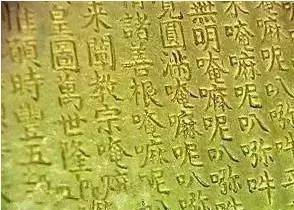 唵嘛呢叭
本唵嘛呢叭𠺗吽
無明唵嘛呢叭𠺗
圓滿唵嘛呢叭
諸善根唵嘛呢叭
來闡教宗唵嘛
皇圖萬世隆
惟願時豐五